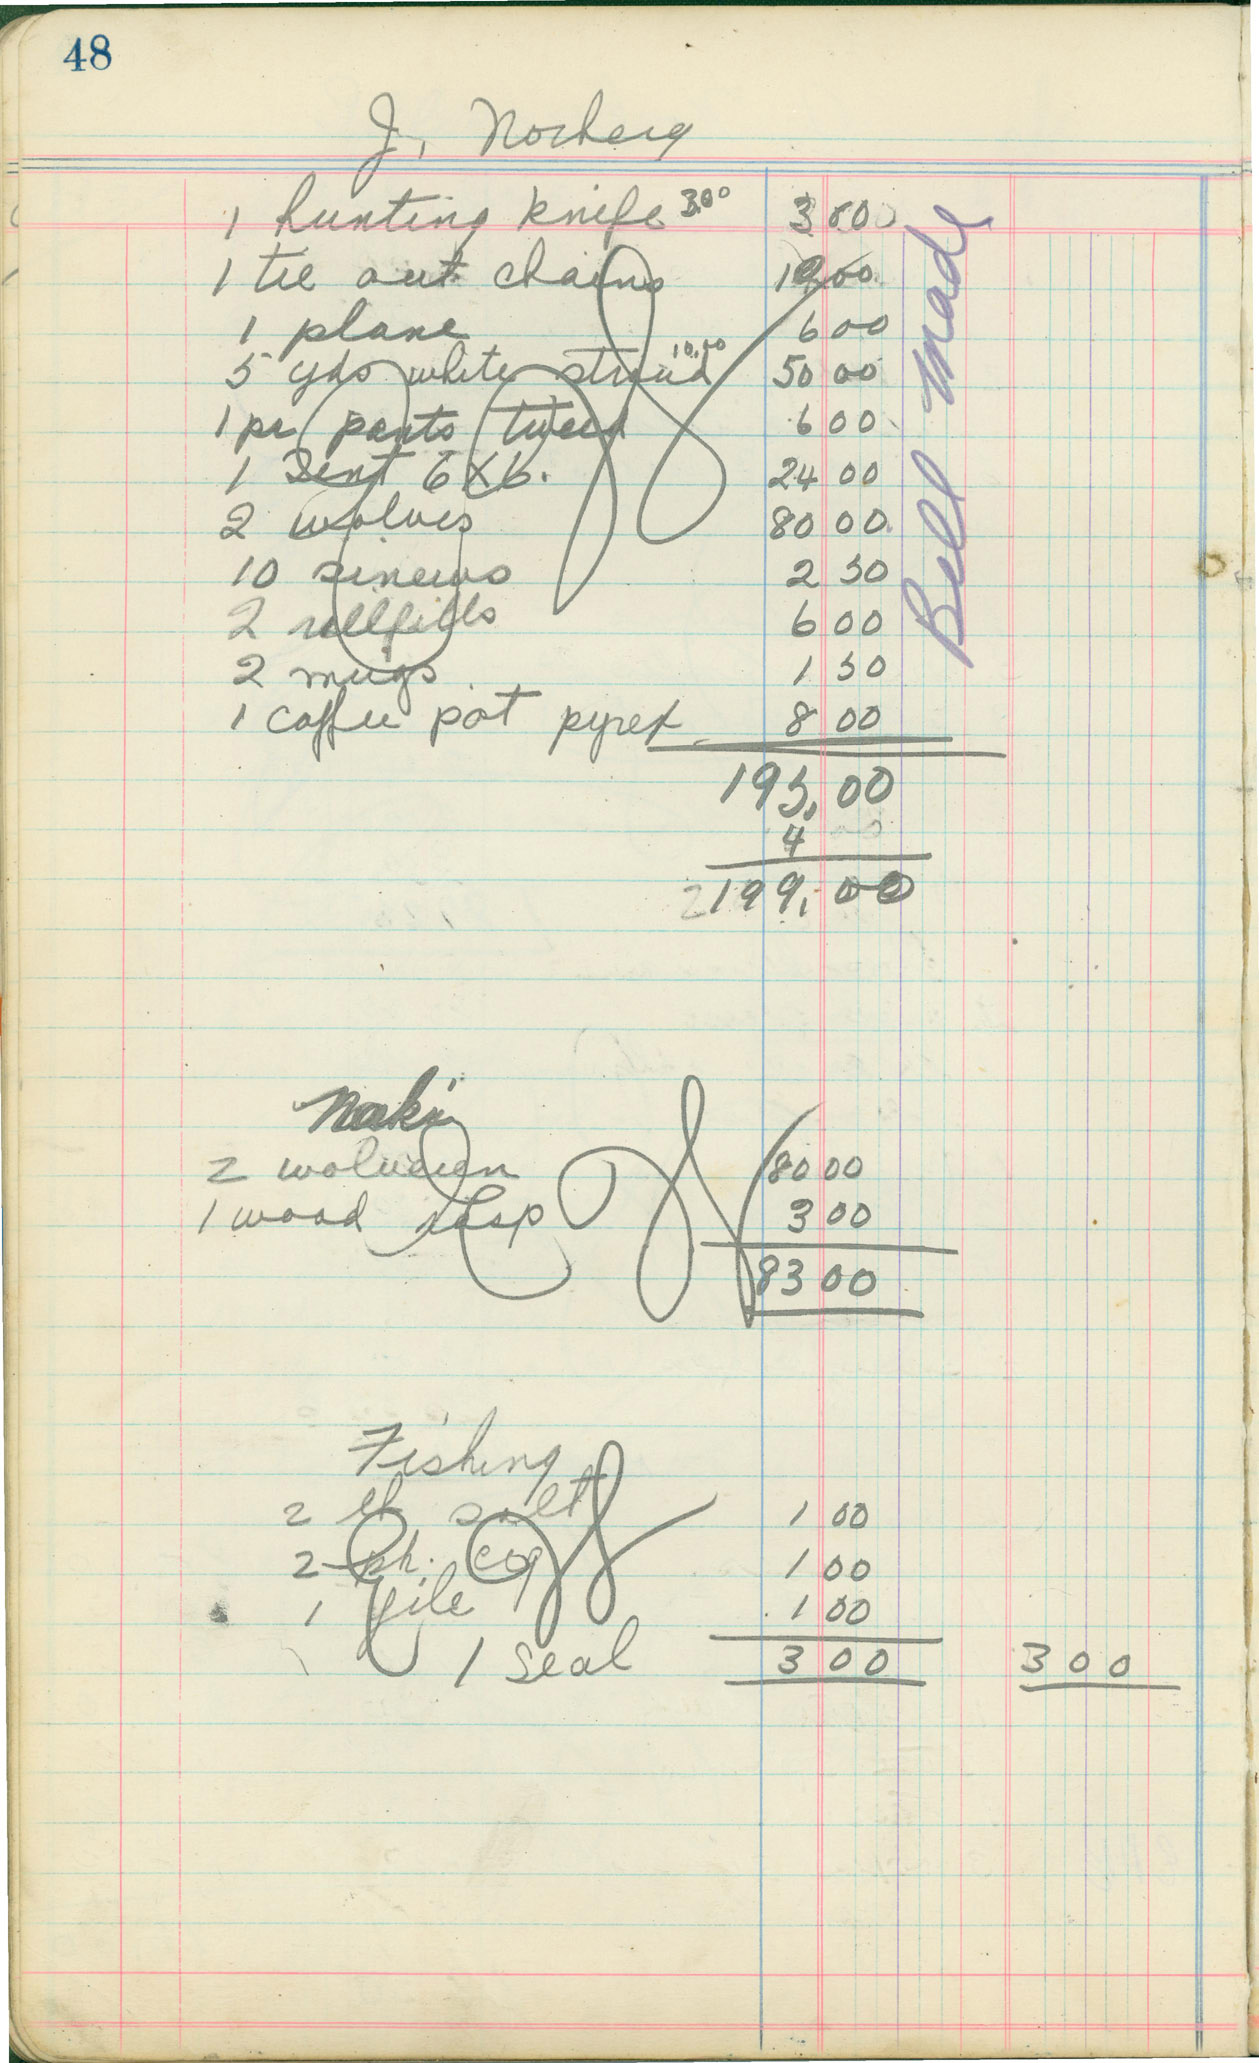 48
J. Norberg
1 hunting knife 3.00 3 00
1 tie out chains 00
1 plane 6 00
5 yds white stroud 10.00 50 00
1 pr pants tweed 6 00
1 Tent 6 x 6. 24 00
2 wolves 80 00
10 sinews 2 50
2 refills 6 00
2 mugs 1 50
1 coffee pot pyrex 8 00
195.00
4 00
199.00
Bill Made
Naki
2 wolverien 80 00
1 wood rasp 3 00
83 00
Fishing
2 lb salt 1 00
2 pk. cig 1 00
1 file 1 00
1 seal 3 00 3 00